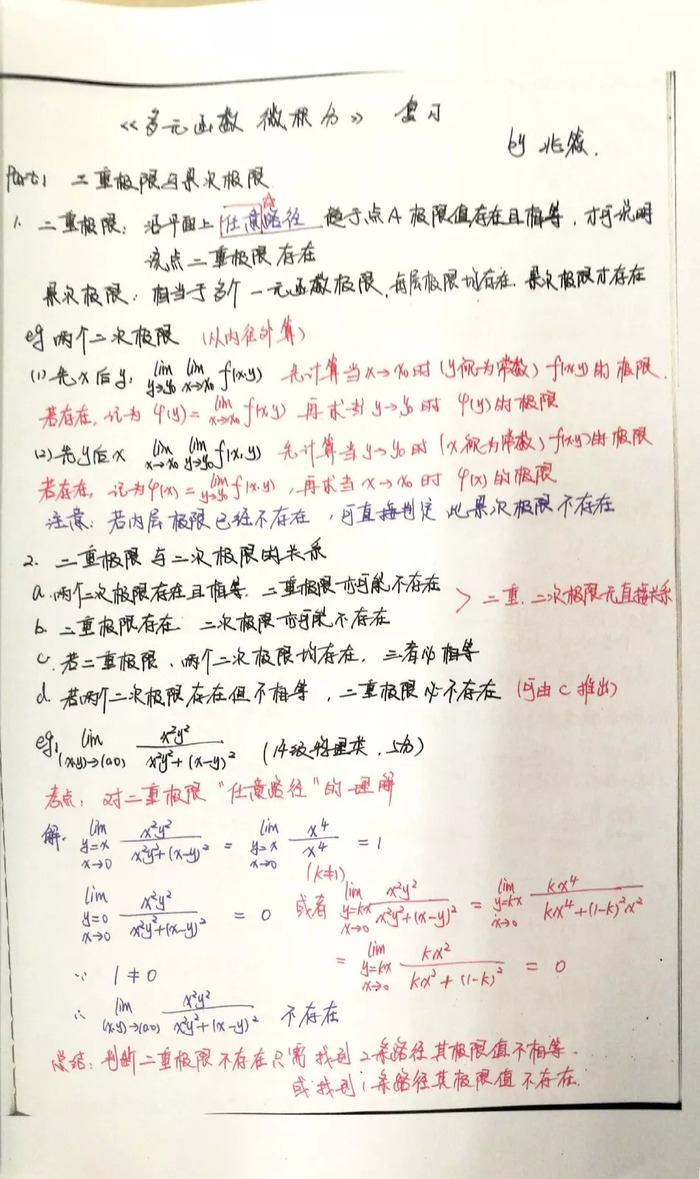 《多元函数 微积分》 复习
by 兆筱.
Part1 二重极限与累次极限
1. 二重极限: 沿平面上 任意路径 趋于点A 极限值存在且相等, 才可说明
该点二重极限存在
累次极限: 相当于多个一元函数极限, 每层极限均存在, 累次极限才存在
eg 两个二次极限 (从内往外算)
(1) 先x后y: lim y→y₀ lim x→x₀ f(x,y) 先计算当x→x₀时 (y视为常数) f(x,y)的极限.
若存在, 记为 φ(y) = lim x→x₀ f(x,y) 再求当y→y₀时 φ(y)的极限
(2) 先y后x lim x→x₀ lim y→y₀ f(x,y) 先计算当y→y₀时 (x视为常数) f(x,y)的极限
若存在, 记为φ(x) = lim y→y₀ f(x,y), 再求当x→x₀时 φ(x)的极限
注意: 若内层极限已经不存在, 可直接判定此累次极限不存在
2. 二重极限与二次极限的关系
a. 两个二次极限存在且相等. 二重极限亦可能不存在 > 二重.二次极限无直接关系
b. 二重极限存在 二次极限亦可能不存在
c. 若二重极限、两个二次极限均存在, 三者必相等
d. 若两个二次极限存在但不相等, 二重极限必不存在 (可由C推出)
eg1 lim (x,y)→(0,0) x²y² / x²y²+(x-y)² (14级物理类, 5分)
考点: 对二重极限"任意路径"的理解
解: lim y=x x→0 x²y² / x²y²+(x-y)² = lim y=x x→0 x⁴ / x⁴ = 1
(k≠1)
lim y=0 x→0 x²y² / x²y²+(x-y)² = 0 或者 lim y=kx x→0 x²y² / x²y²+(x-y)² = lim y=kx x→0 kx⁴ / kx⁴+(1-k)²x²
∵ 1≠0 = lim y=kx x→0 kx² / kx²+(1-k)² = 0
∴ lim (x,y)→(0,0) x²y² / x²y²+(x-y)² 不存在
总结: 判断二重极限不存在只需找到2条路径其极限值不相等.
或找到1条路径其极限值不存在.